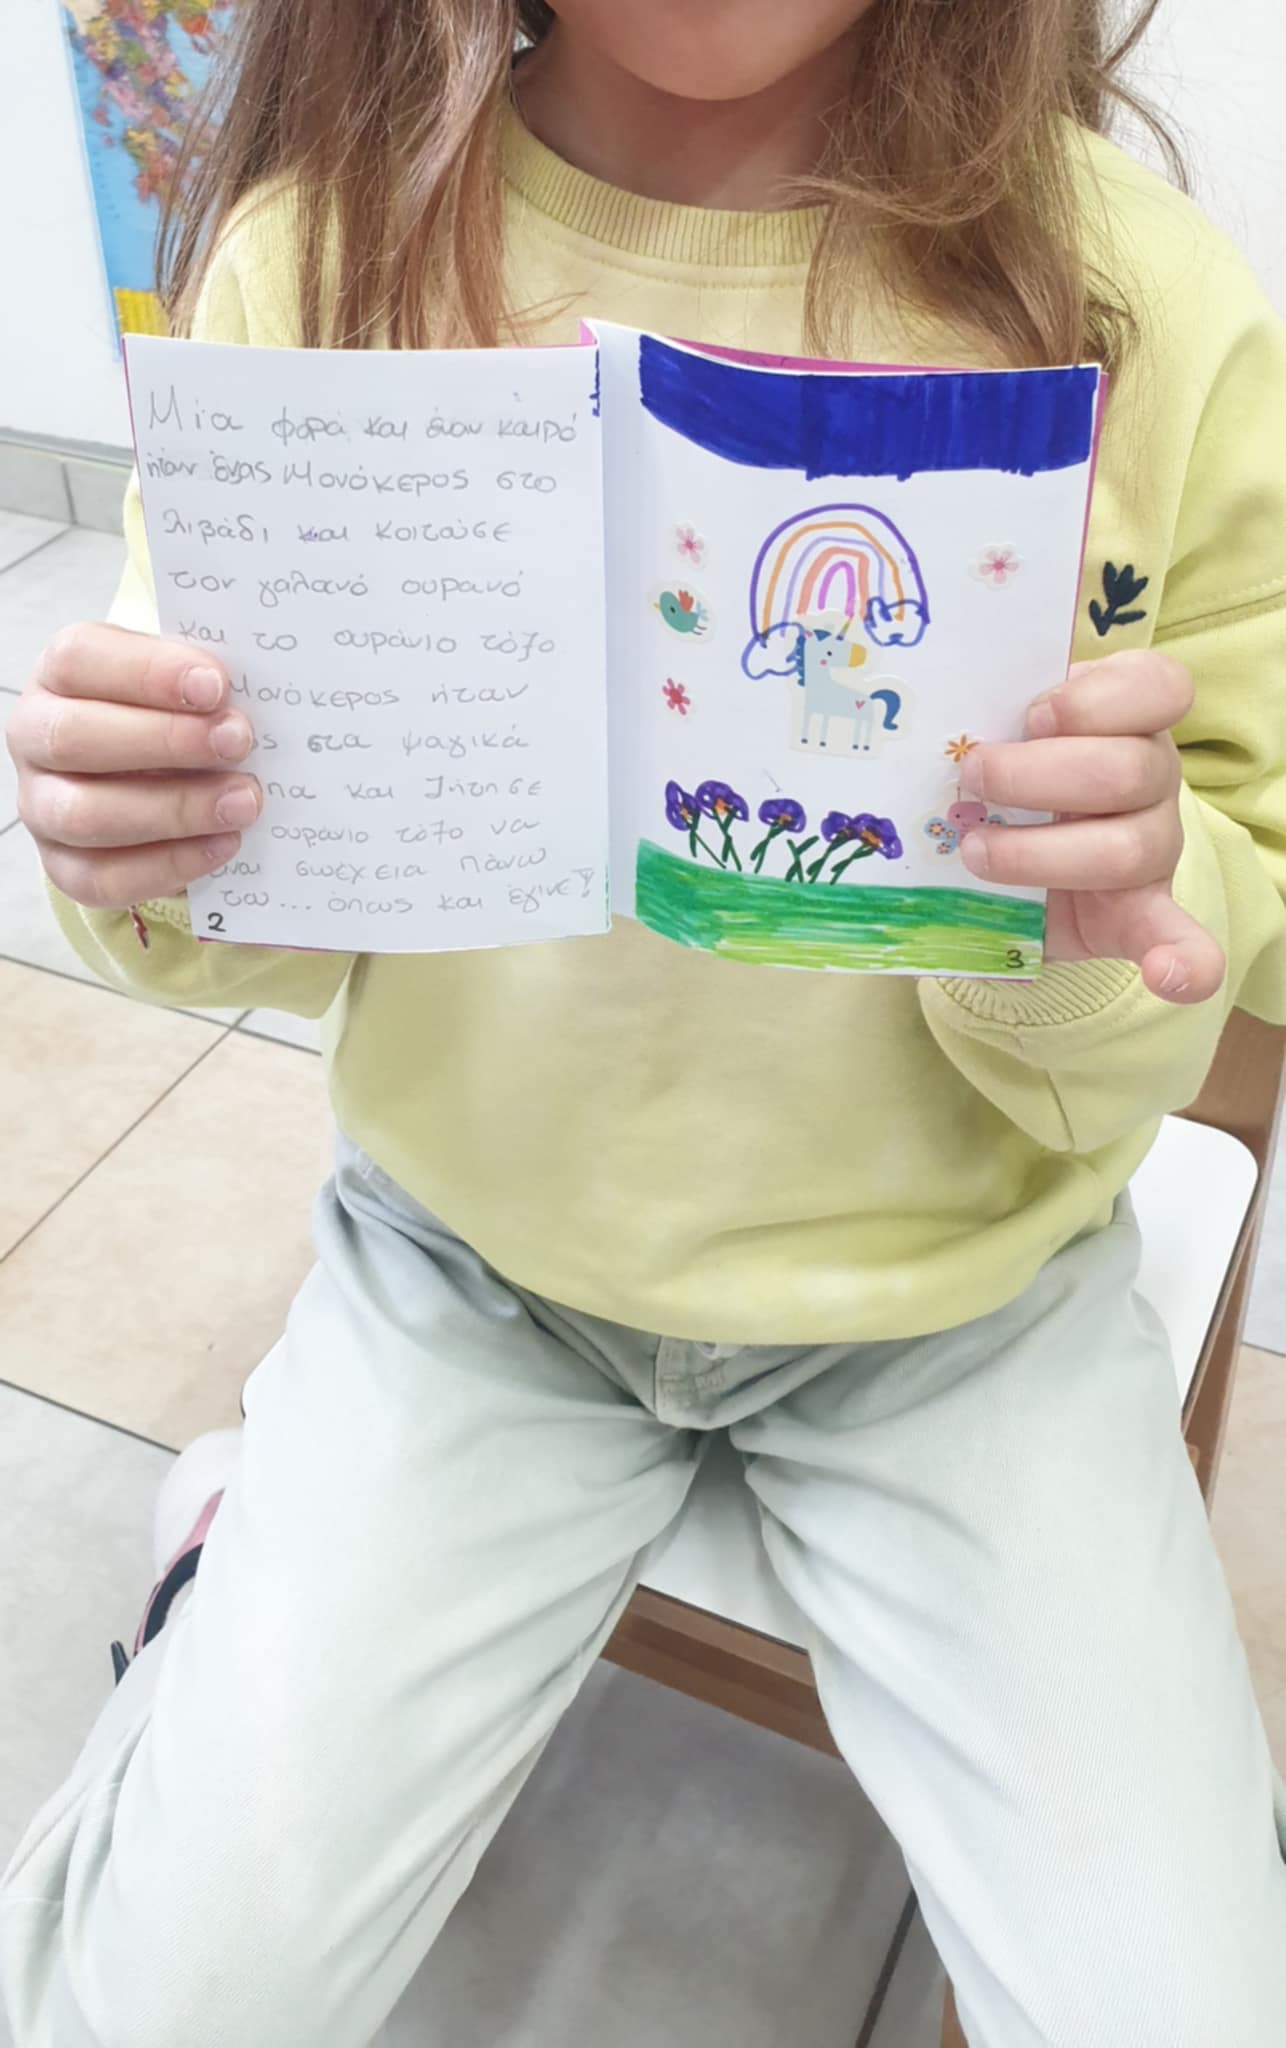 Μία φορά και έναν καιρό
ήταν ένας Μονόκερος στο
λιβάδι και κοιτούσε
τον γαλανό ουρανό
και το ουράνιο τόξο
Μονόκερος ήταν
ος στα μαγικά
πα και ζήτησε
ουράνιο τόξο να
είναι συνέχεια πάνω
του... όπως και έγινε!
2
3